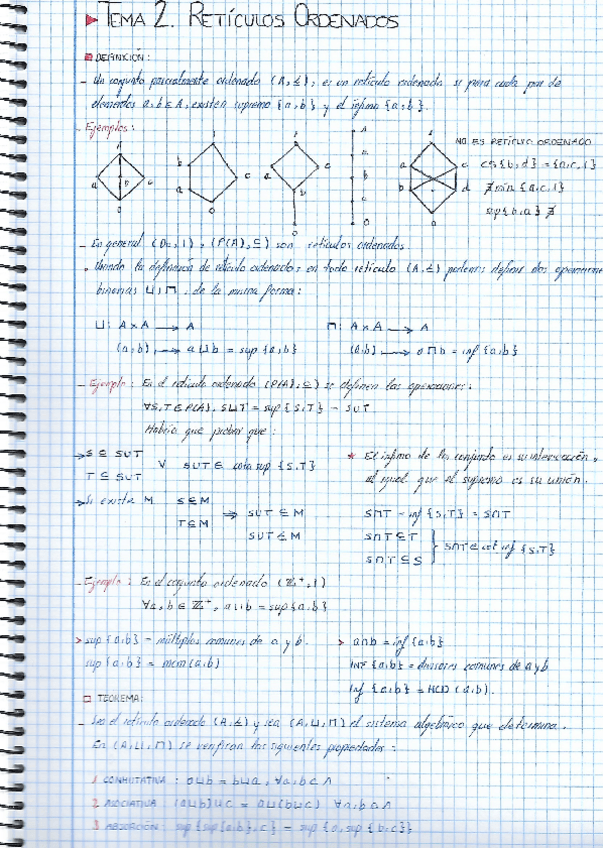 TEMA 2. RETÍCULOS ORDENADOS
DEFINICIÓN:
- Un conjunto parcialmente ordenado (A,≤), es un retículo ordenado si para cada par de
elementos a,b∈A, existen supremo {a,b} y el ínfimo {a,b}.
- Ejemplos:
NO ES RETÍCULO ORDENADO
cs{b,d} = {a,c,1}
∄ min {a,c,1}
sup{b,d} ∄
- En general (Dn,|), (P(A),⊆) son retículos ordenados.
Usando la definición de retículo ordenado, en todo retículo (A,≤) podemos definir dos operaciones
binarias ⊔,⊓, de la misma forma:
⊔: A×A → A
⊓: A×A → A
(a,b) → a⊔b = sup {a,b}
(a,b) → a⊓b = inf {a,b}
- Ejemplo: En el retículo ordenado (P(A),⊆) se definen las operaciones:
∀S,T∈P(A), S⊔T = sup {S,T} = S∪T
Habría que probar que:
→ S ⊆ S∪T
T ⊆ S∪T
∨ S∪T ∈ cota sup {S,T}
→ Si existe M S⊆M
T⊆M
→ S∪T ⊆ M
S∪T ≤ M
* El ínfimo de los conjunto es su intersección,
al igual que el supremo es su unión.
S⊓T = inf {S,T} = S∩T
S∩T⊆T
S∩T⊆S
} S∩T∈cot inf {S,T}
- Ejemplo: En el conjunto ordenado (ℤ⁺,|)
∀a,b ∈ ℤ⁺, a⊔b = sup{a,b}
> sup {a,b} = múltiplos comunes de a y b.
sup {a,b} = mcm(a,b)
> a⊓b = inf {a,b}
INF {a,b} = divisores comunes de a y b
Inf {a,b} = MCD (a,b).
TEOREMA:
- Sea el retículo ordenado (A,≤) y sea (A,⊔,⊓) el sistema algebraico que determina.
En (A,⊔,⊓) se verifican las siguientes propiedades:
1 CONMUTATIVA: a⊔b = b⊔a, ∀a,b∈A
2 ASOCIATIVA (a⊔b)⊔c = a⊔(b⊔c) ∀a,b∈A
3 ABSORCIÓN: sup{sup{a,b},c} = sup {a,sup {b,c}}